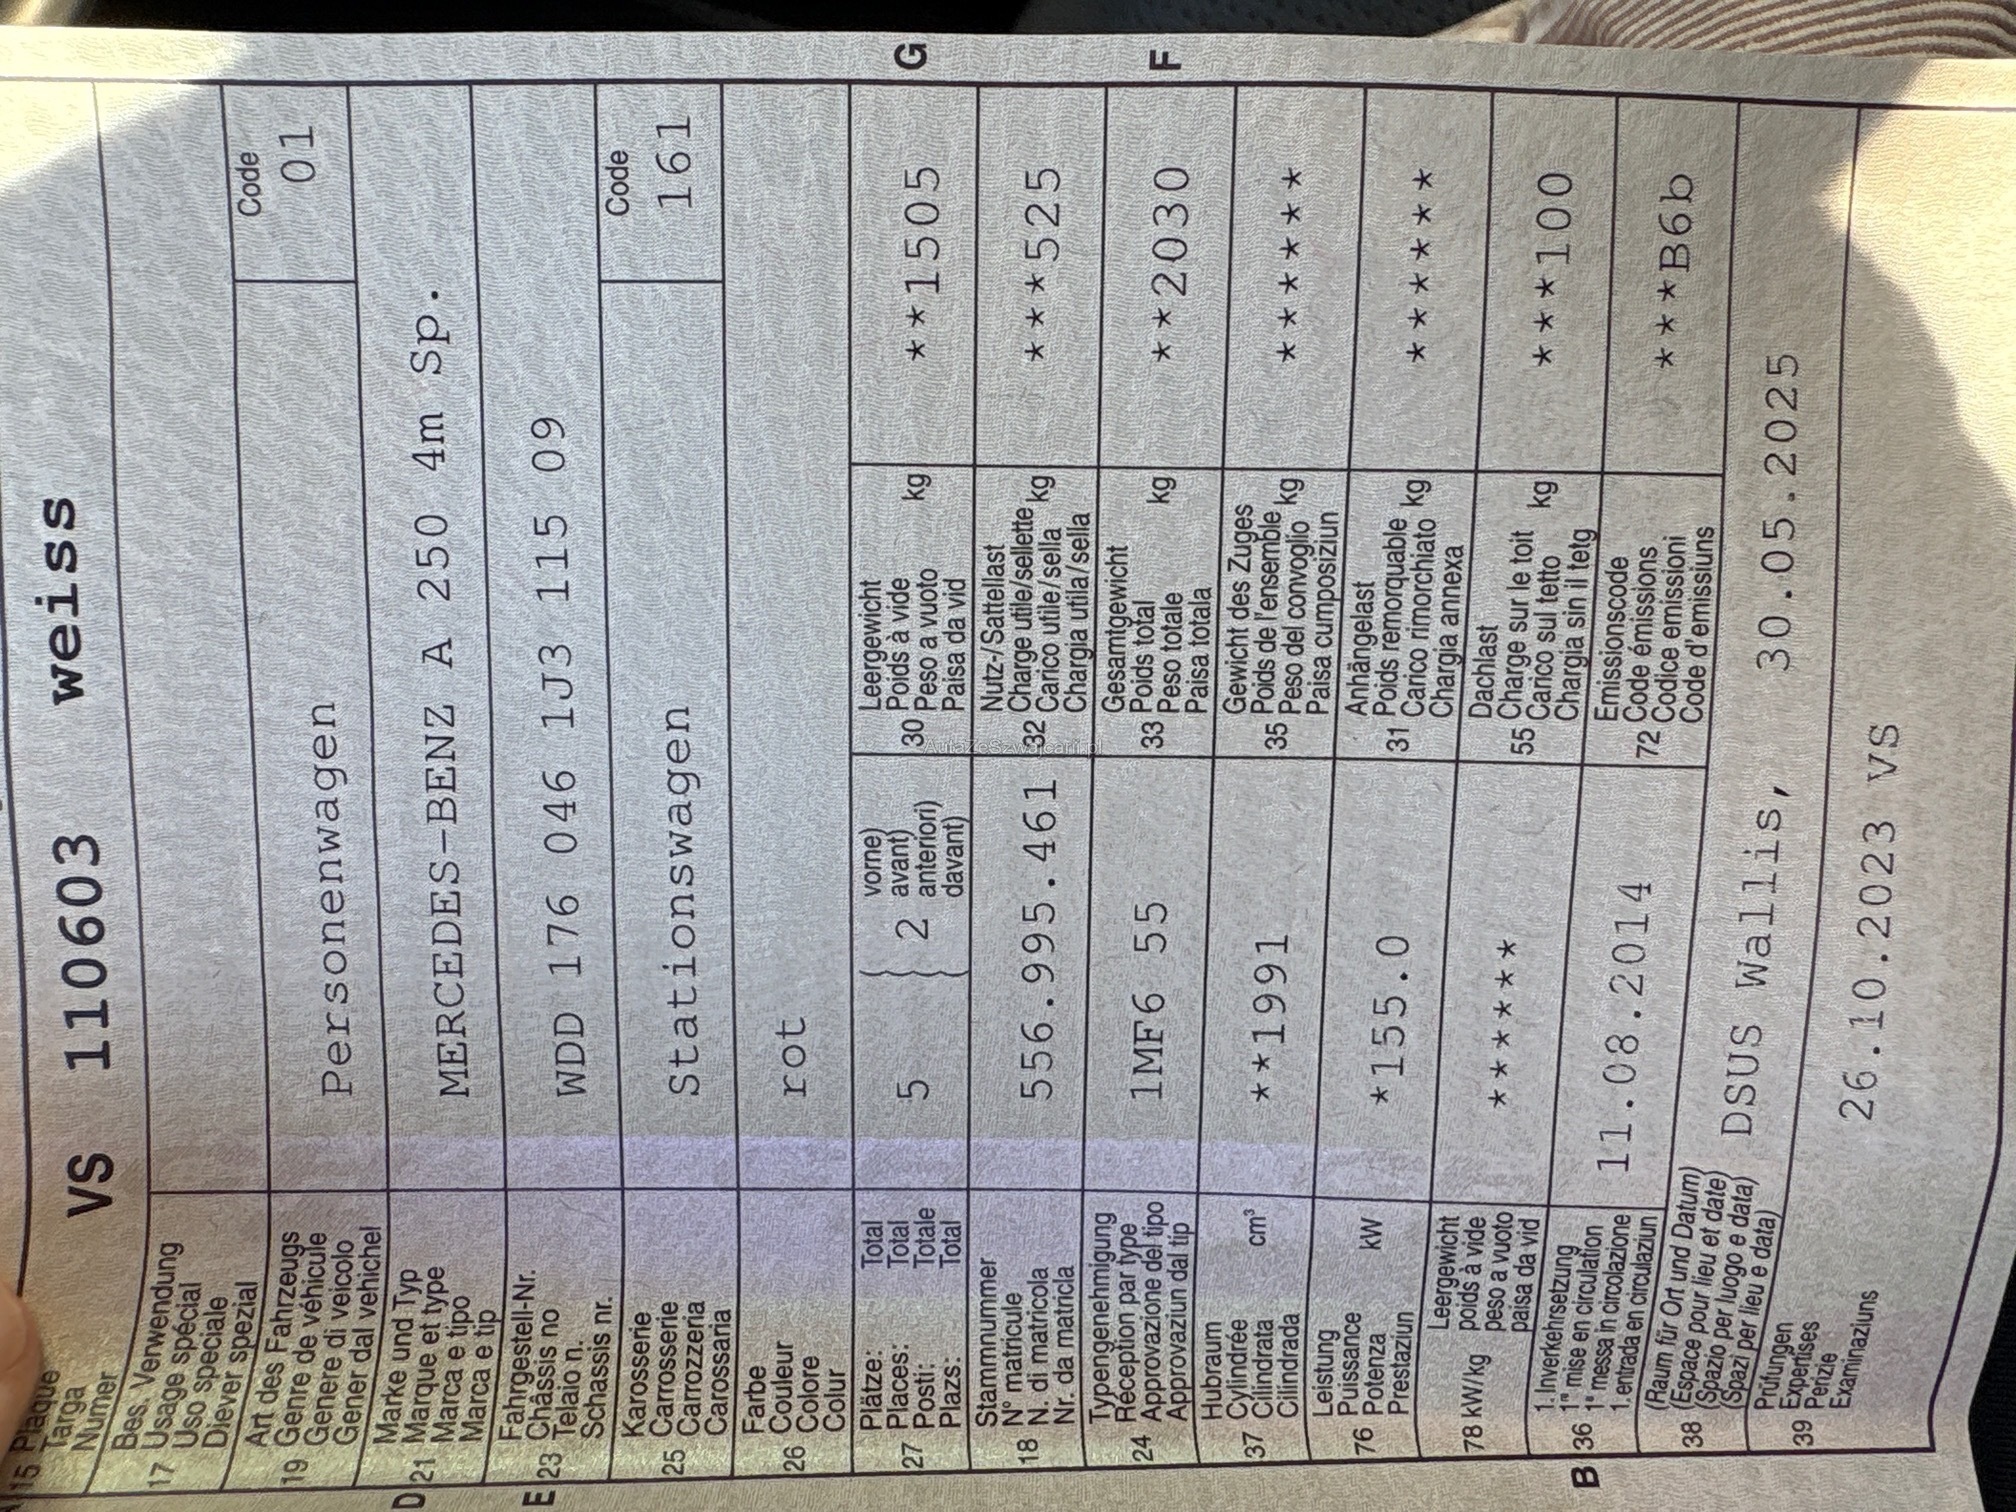 15 Plaque
Targa
Numer
VS 110603 weiss
Bes. Verwendung
17 Usage spécial
Uso speciale
Diever spezial
Art des Fahrzeugs
19 Genre de véhicule
Genere di veicolo
Gener dal vehichel
Personenwagen
Code
01
Marke und Typ
D 21 Marque et type
Marca e tipo
Marca e tip
MERCEDES-BENZ A 250 4m Sp.
Fahrgestell-Nr.
E 23 Châssis no
Telaio n.
Schassis nr.
WDD 176 046 1J3 115 09
Karosserie
25 Carrosserie
Carrozzeria
Carossaria
Stationswagen
Code
161
Farbe
26 Couleur
Colore
Colur
rot
Plätze: Total
Places: Total
27 Posti: Totale
Plazs: Total
5 2
vorne)
avant)
anteriori)
davant)
Leergewicht
Poids à vide
30 Peso a vuoto kg
Paisa da vid
**1505 G
Stammnummer
N° matricule
18 N. di matricola
Nr. da matricla
556.995.461
Nutz-/Sattellast
Charge utile/sellette
32 Carico utile/sella kg
Chargia utila/sella
***525
Typengenehmigung
Réception par type
24 Approvazione del tipo
Approvaziun dal tip
1MF6 55
Gesamtgewicht
Poids total
33 Peso totale kg
Paisa totala
**2030 F
Hubraum
Cylindrée
37 Cilindrata cm³
Cilindrada
**1991
Gewicht des Zuges
Poids de l'ensemble
35 Peso del convoglio kg
Paisa cumposiziun
******
Leistung
Puissance
76 Potenza kW
Prestaziun
*155.0
Anhängelast
Poids remorquable
31 Carico rimorchiato kg
Chargia annexa
******
Leergewicht
78 kW/kg poids à vide
peso a vuoto
paisa da vid
******
Dachlast
Charge sur le toit
55 Carico sul tetto kg
Chargia sin il tetg
***100
1. Inverkehrsetzung
B 36 1re mise en circulation
1a messa in circolazione
1. entrada en circulaziun
11.08.2014
Emissionscode
72 Code émissions
Codice emissioni
Code d'emissiuns
***B6b
(Raum für Ort und Datum)
38 (Espace pour lieu et date)
(Spazio per luogo e data)
(Spazi per lieu e data)
DSUS Wallis, 30.05.2025
Prüfungen
39 Expertises
Perizie
Examinaziuns
26.10.2023 VS
AutaZeSzwajcarii.pl